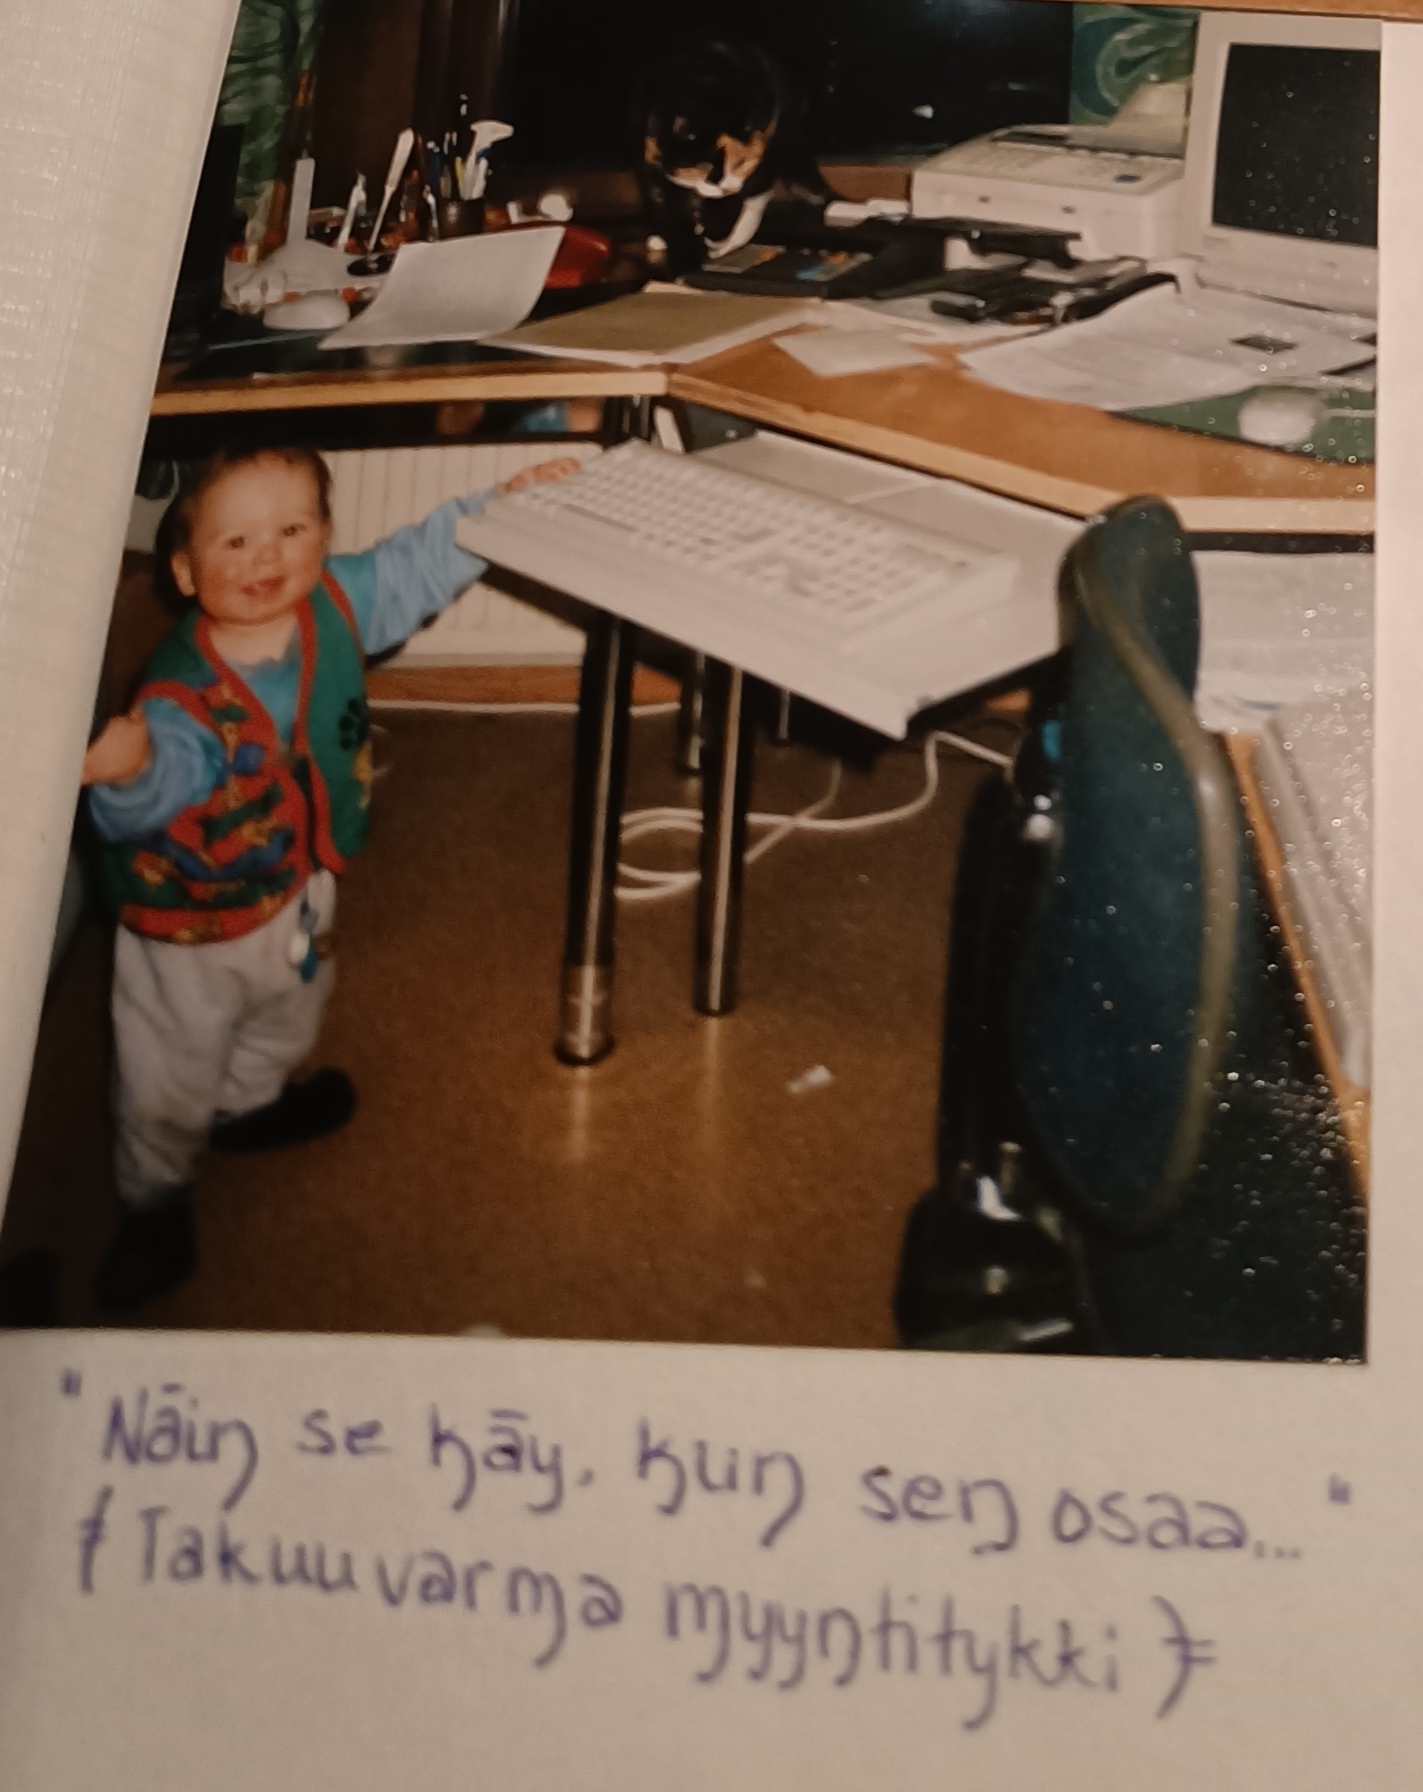 "Näin se käy, kun sen osaa..."
(Takuuvarma myyntitykki)